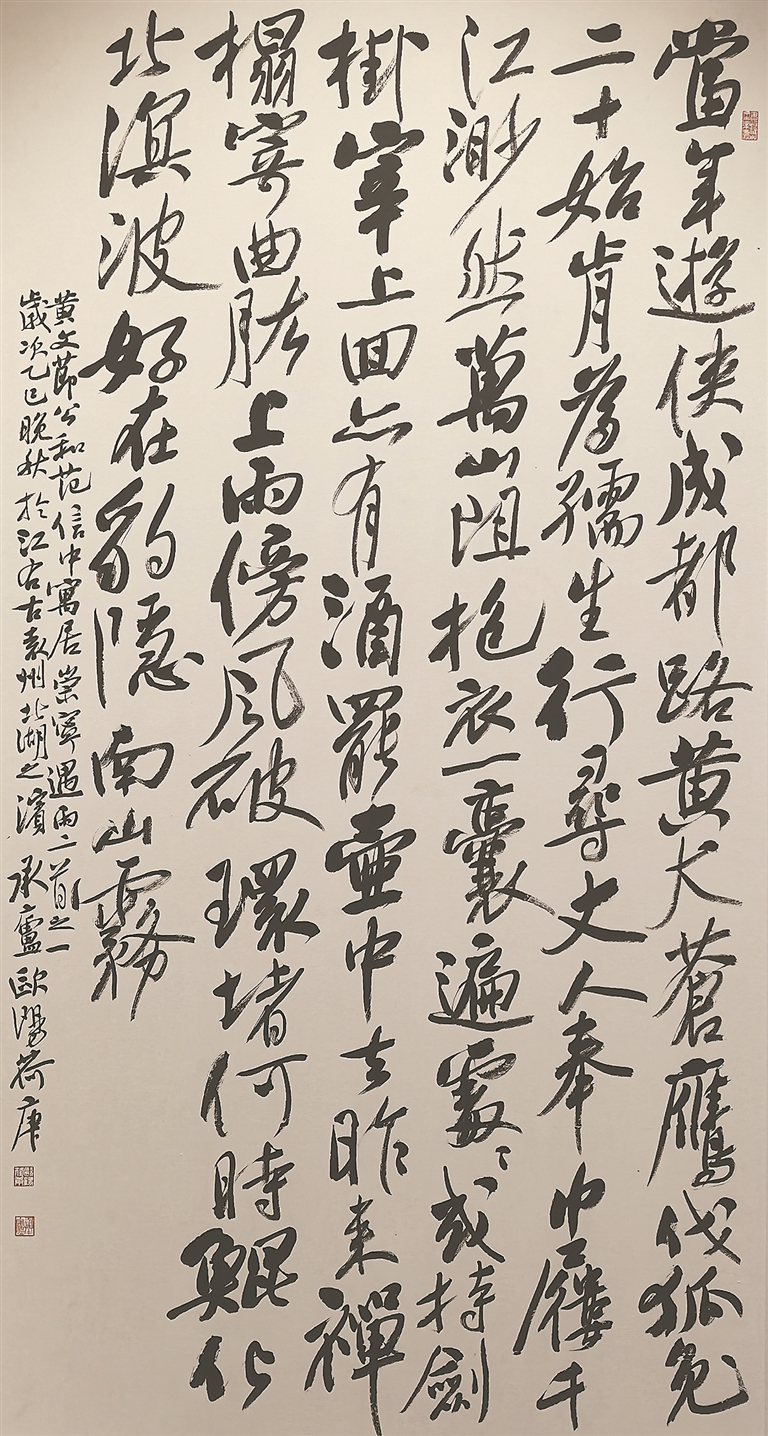 當年遊俠成都路黃犬蒼鷹伐狐兔
二十始肯為孺生行尋丈人奉巾屨千
江渺然萬山阻抱衣一囊遍處〻或持劍
掛宰上回亦有酒罷壺中去昨來禪
榻寄曲肱上雨傍風破環堵何時鯤化
北溟波好在豹隱南山霧
黃文節公和范信中寓居崇寧遇雨二首之一
歲次乙巳晚秋於江右古袁州北湖之濱承廬歐陽荷庚